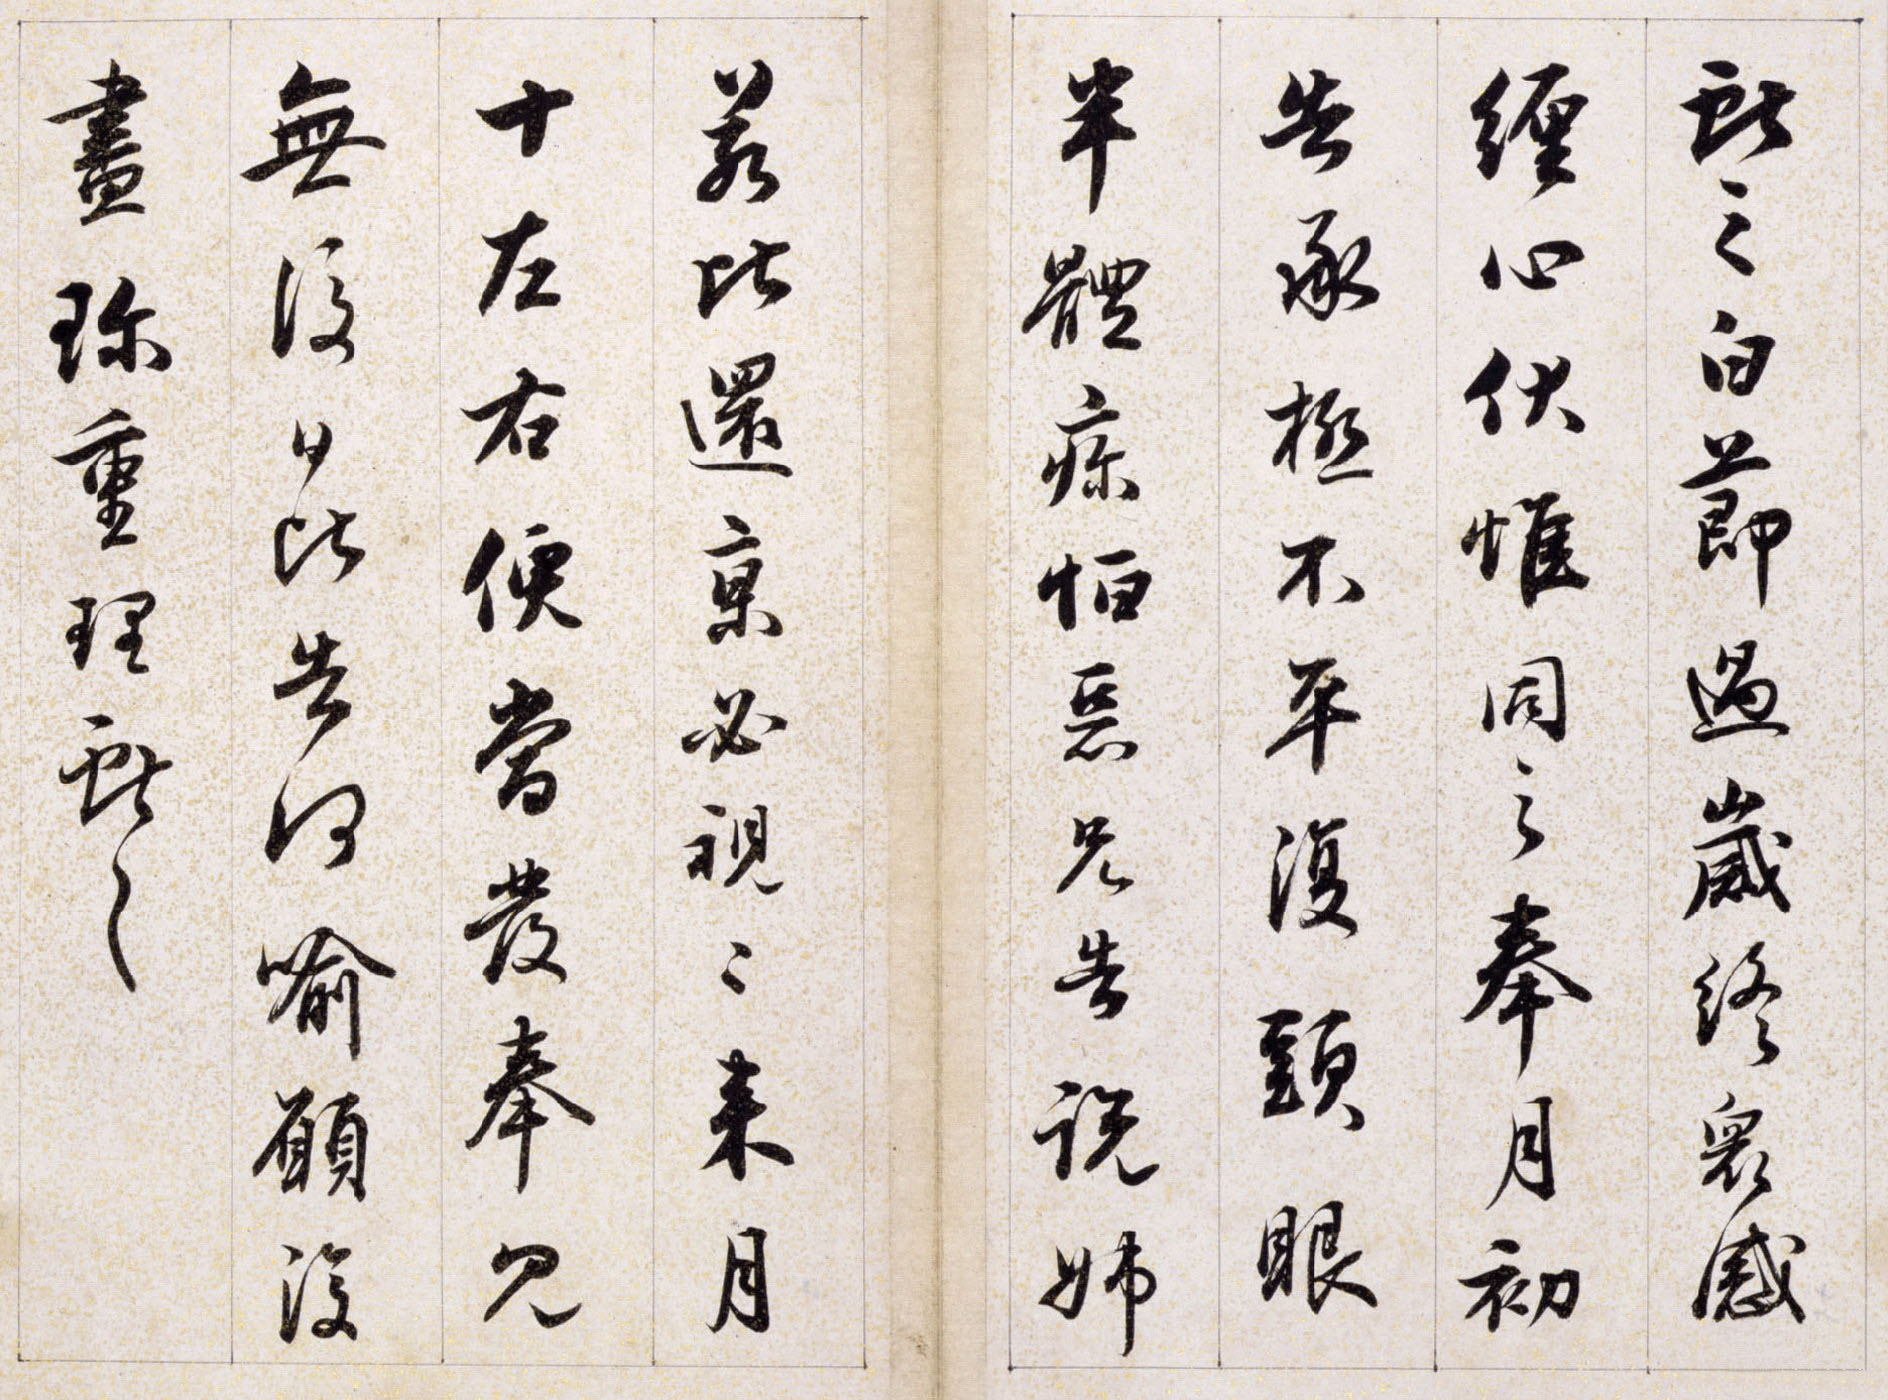 獻之白節過歲終衆感
纏心伏惟同之奉月初
告承極不平復頭眼
半體疼怕惡兄告說姊
若此還京必視之來月
十左右便當發奉見
無復日比告何喻願復
盡珍重理獻之